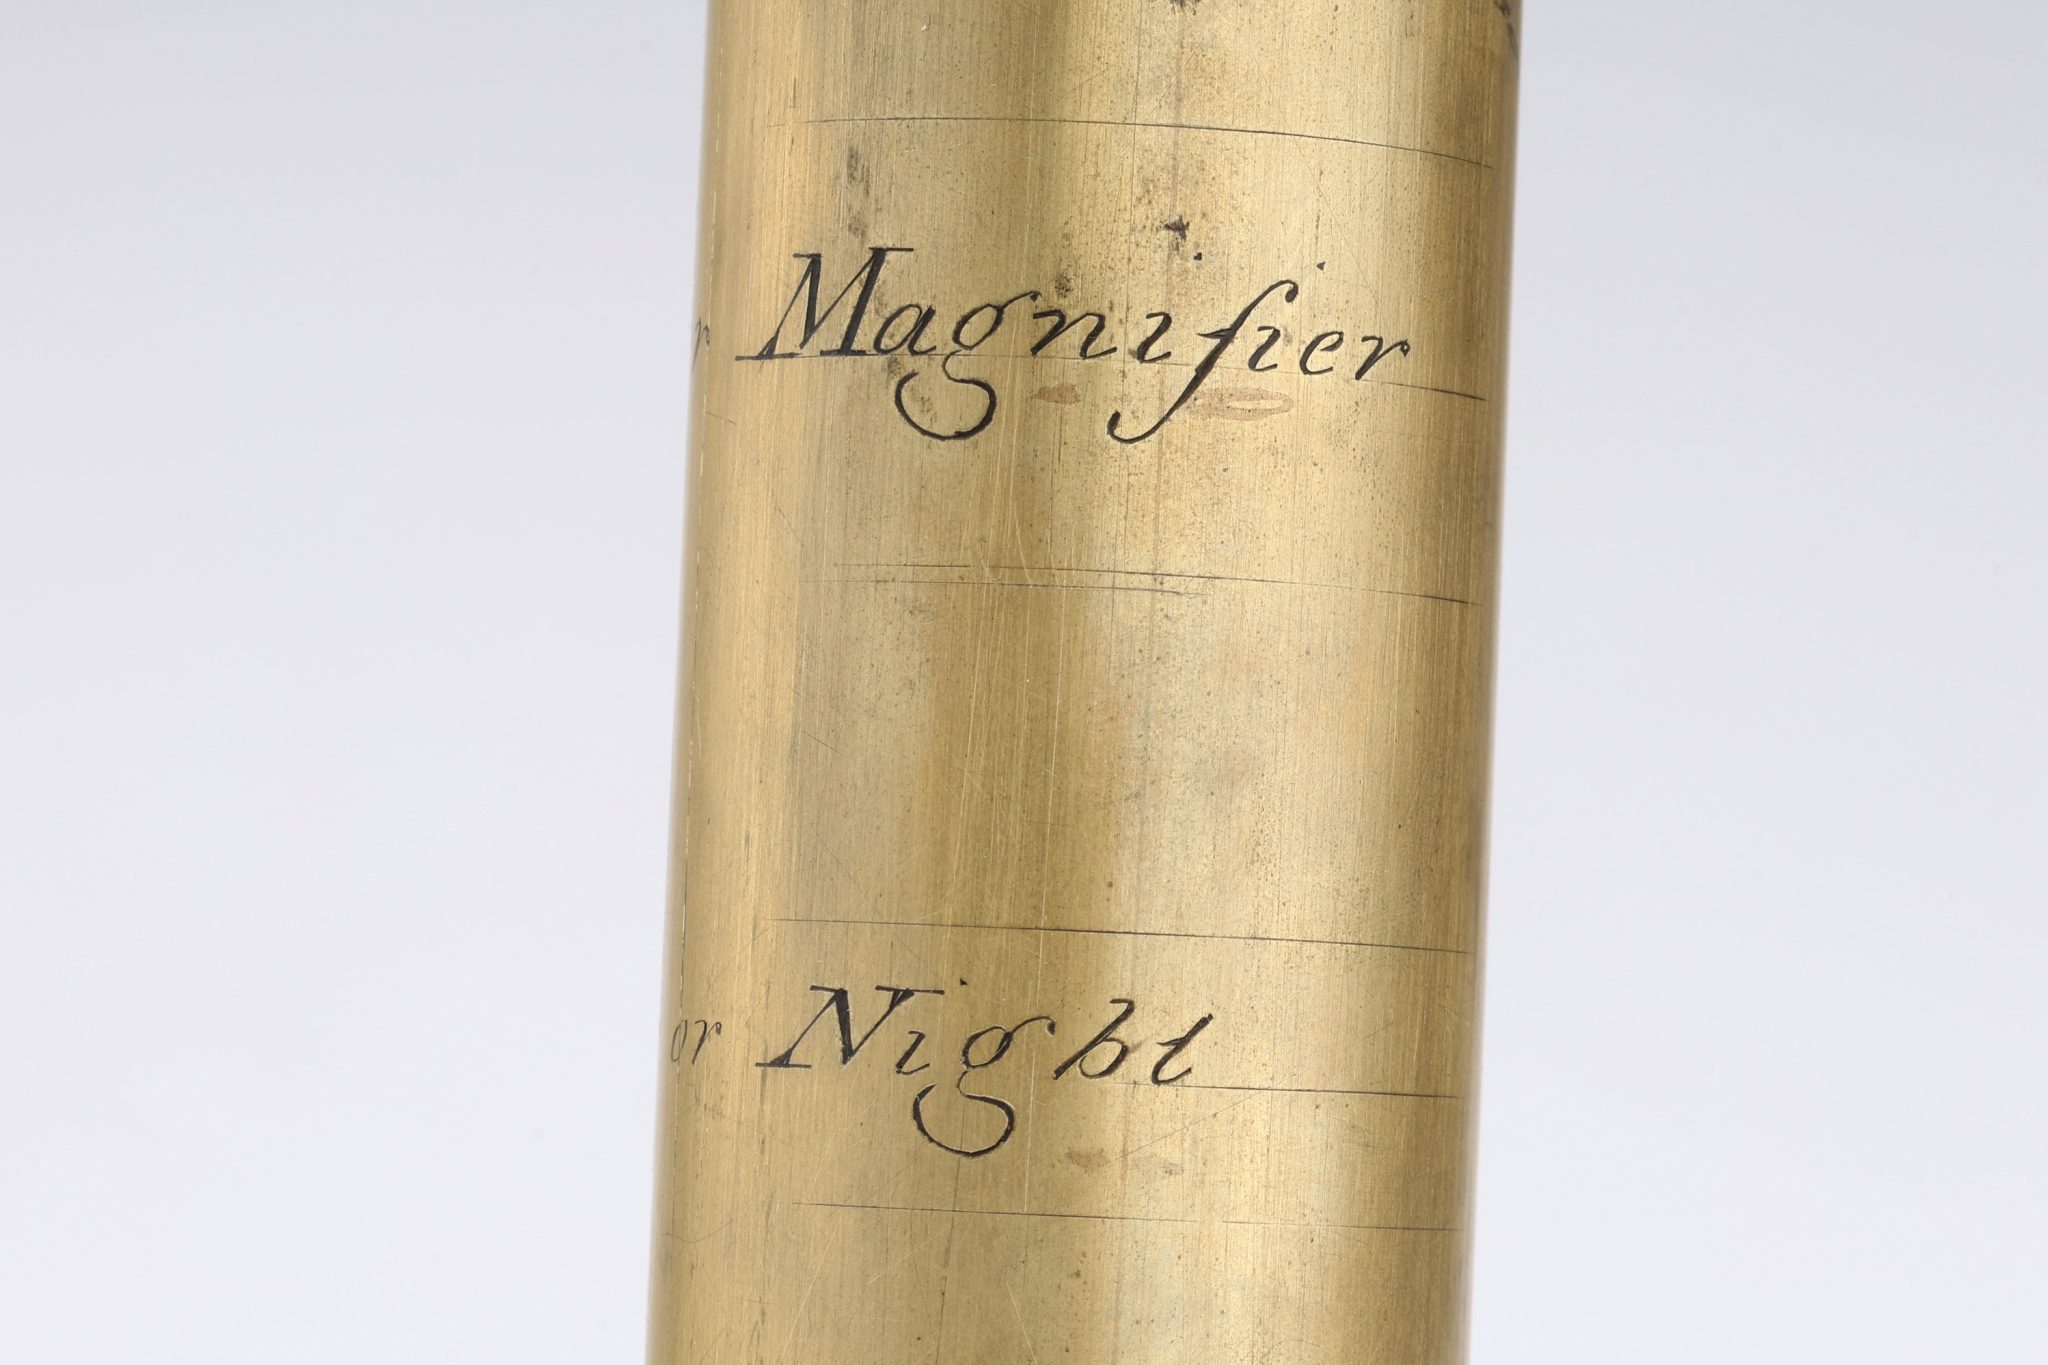 r Magnifier
or Night